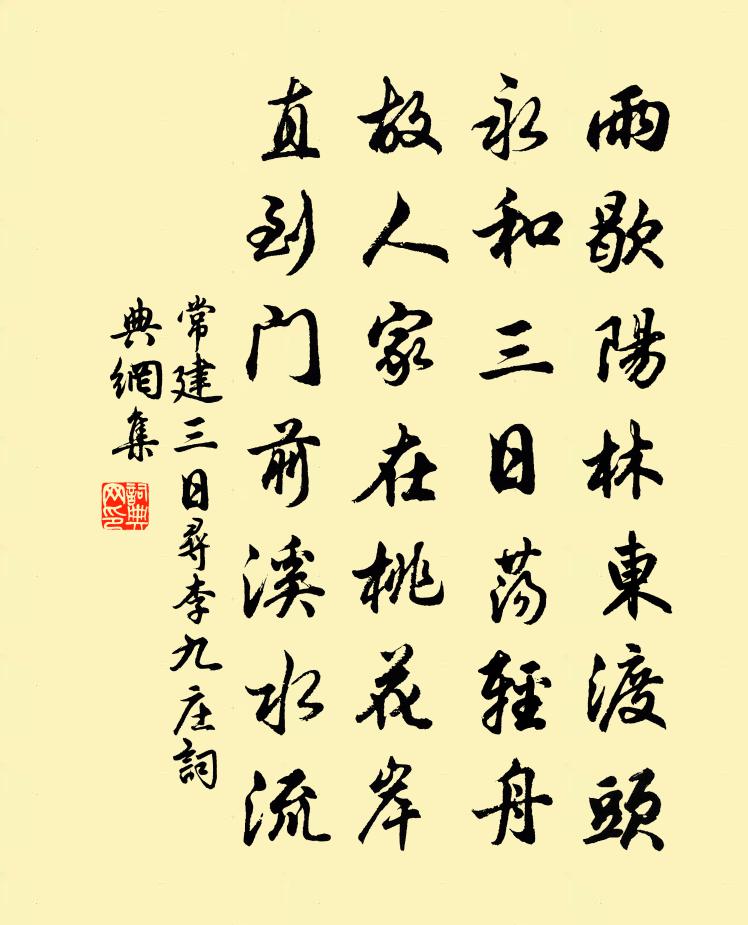 雨歇陽林東渡頭
永和三日荡輕舟
故人家在桃花岸
直到门前溪水流
常建三日尋李九庄詞
典網集
詞典
网印